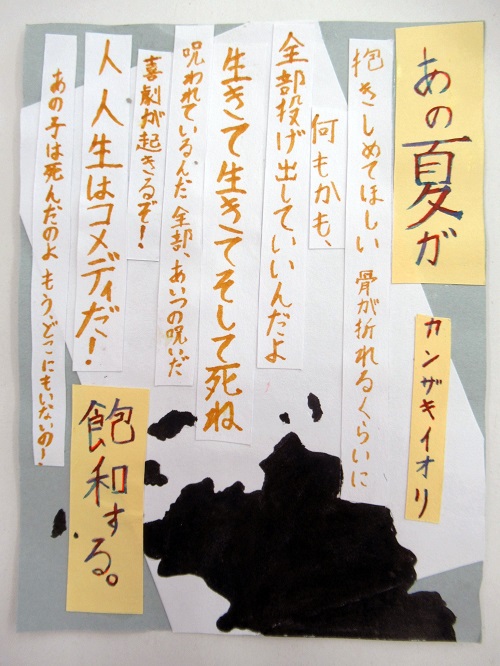 あの夏が
飽和する。
カンザキイオリ
抱きしめてほしい 骨が折れるくらいに
何もかも、
全部投げ出していいんだよ
生きて生きてそして死ね
呪われているんだ 全部、あいつの呪いだ
喜劇が起きるぞ!
人人生はコメディだ!
あの子は死んだのよ もう、どこにもいないの!